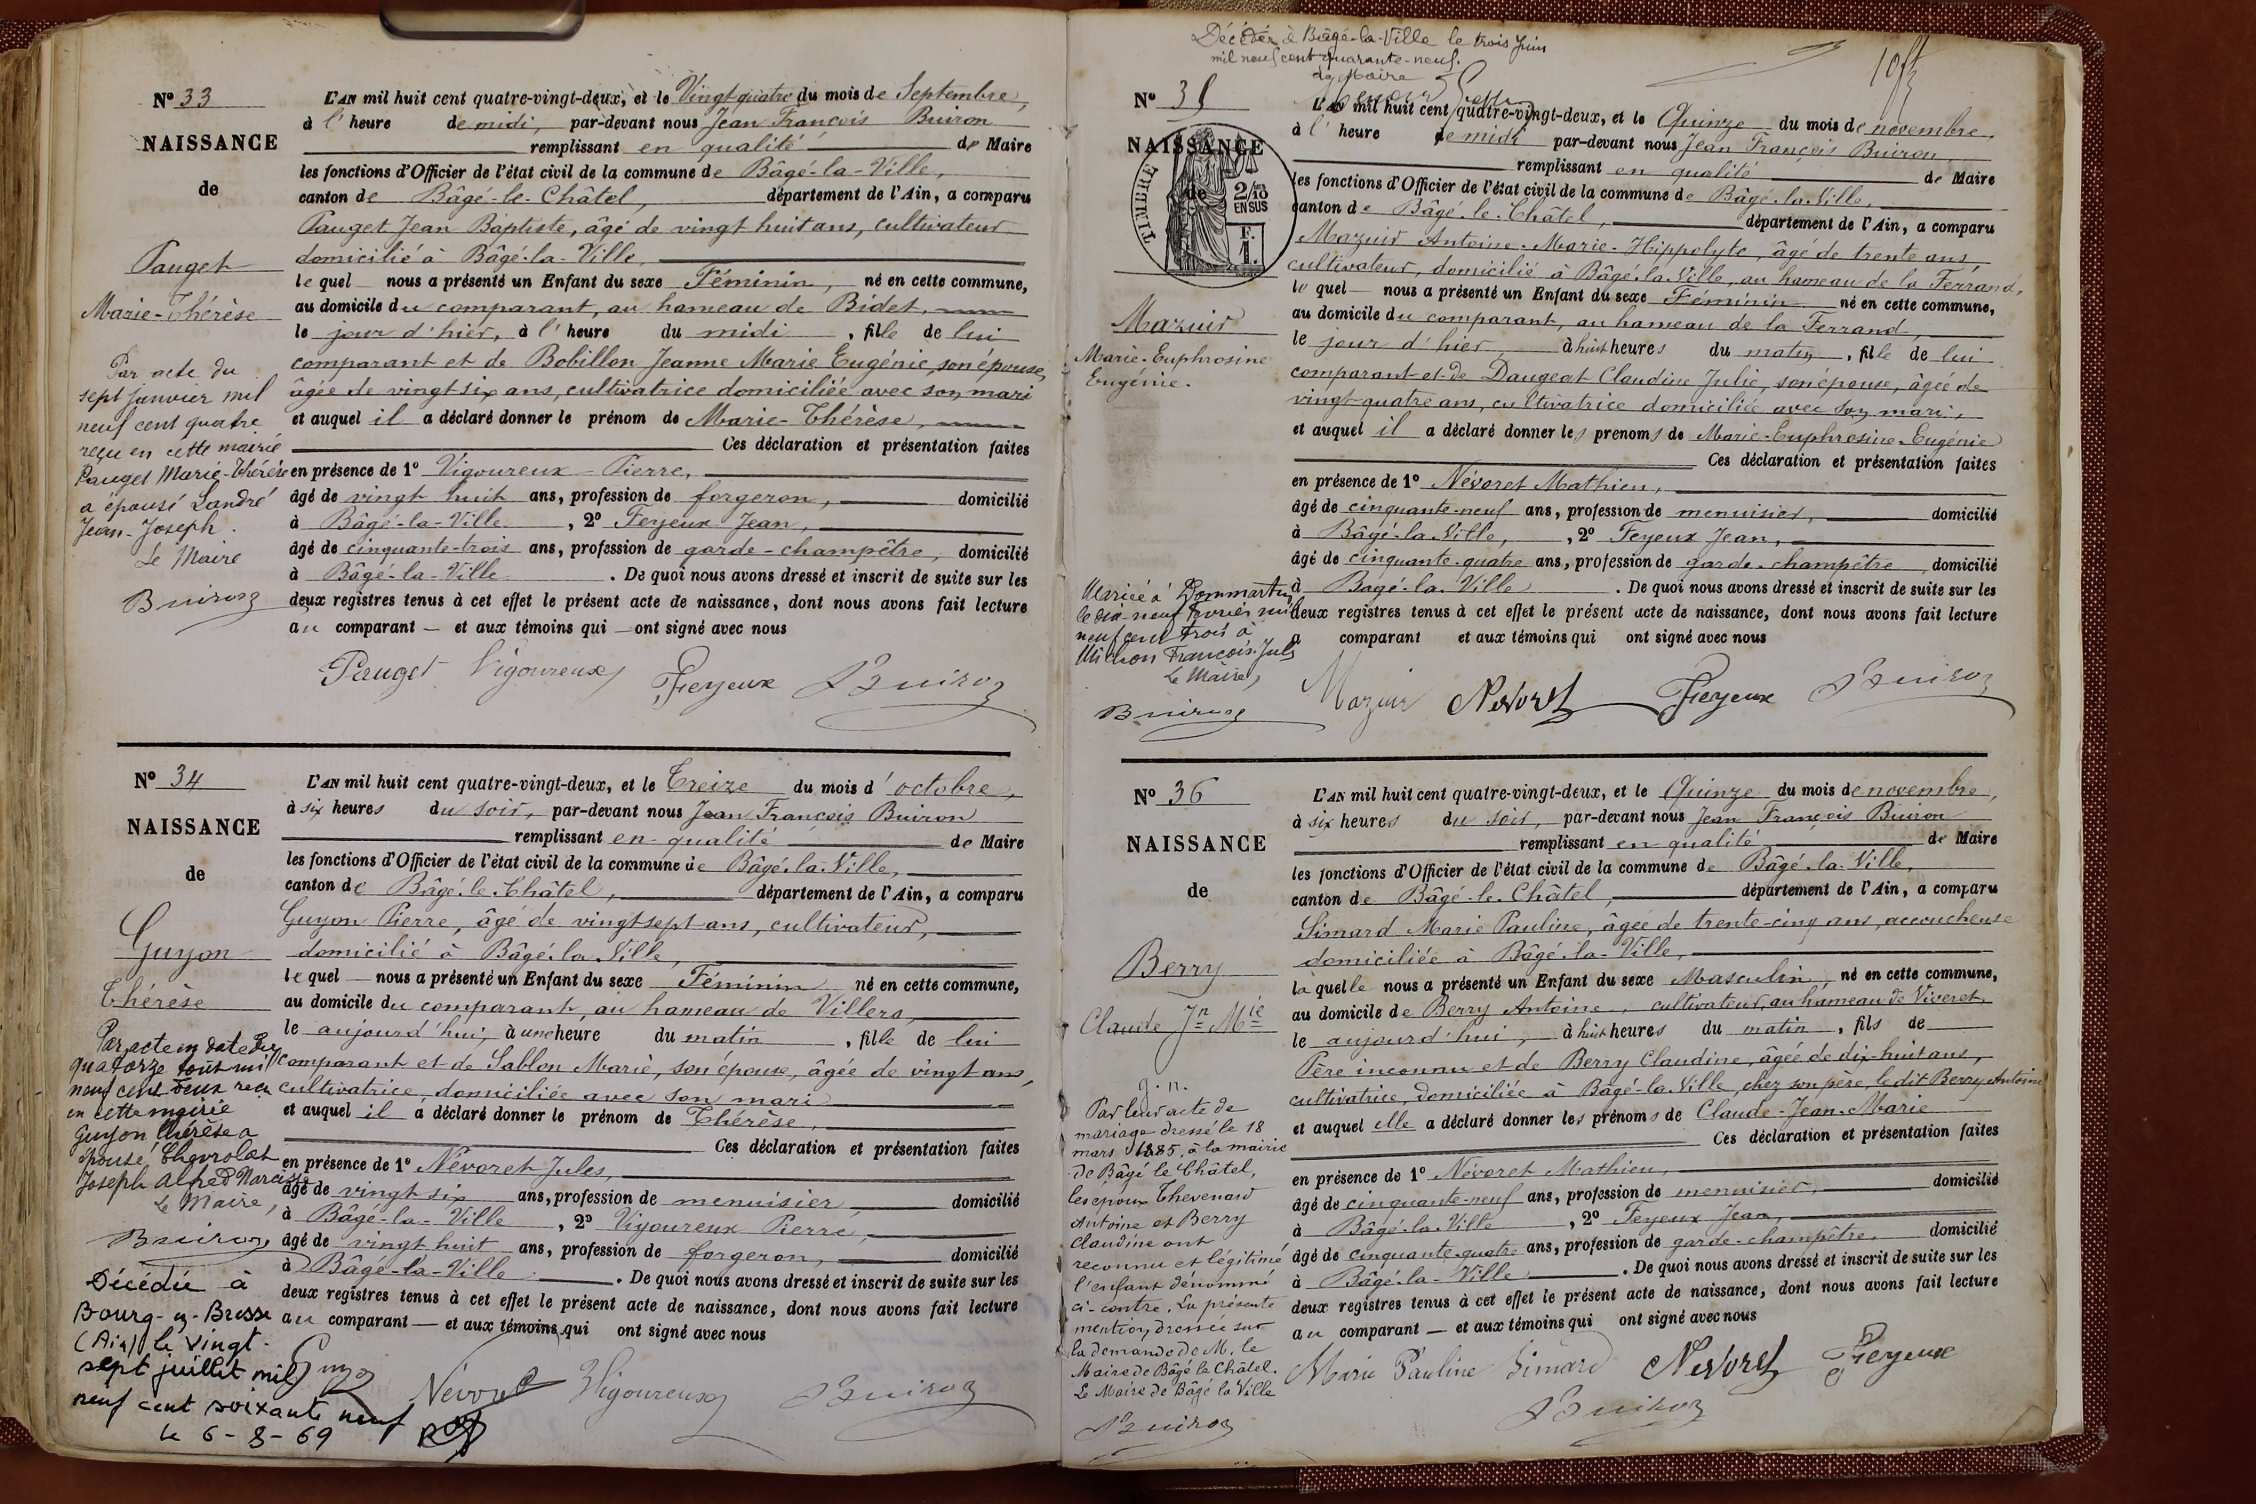 N° 33
NAISSANCE
de
Pauget
Marie-Thérèse
Par acte du
sept janvier mil
neuf cent quatre
reçu en cette mairie
Pauget Marie-Thérèse
a épousé Landré
Jean-Joseph.
Le Maire
Buiron
L'AN mil huit cent quatre-vingt-deux, et le Vingt quatre du mois de Septembre,
à l' heure de midi, par-devant nous Jean François Buiron
remplissant en qualité de Maire
les fonctions d'Officier de l'état civil de la commune de Bâgé-la-Ville,
canton de Bâgé-le-Châtel, département de l'Ain, a comparu
Pauget Jean Baptiste, âgé de vingt huit ans, cultivateur
domicilié à Bâgé-la-Ville,
le quel nous a présenté un Enfant du sexe Féminin, né en cette commune,
au domicile du comparant, au hameau de Bidet,
le jour d'hier, à l' heure du midi, fille de lui
comparant et de Bobillon Jeanne Marie Eugénie, son épouse,
âgée de vingt-six ans, cultivatrice domiciliée avec son mari
et auquel il a déclaré donner le prénom de Marie-Thérèse,
Ces déclaration et présentation faites
en présence de 1° Vigoureux Pierre,
âgé de vingt huit ans, profession de forgeron, domicilié
à Bâgé-la-Ville, 2° Feyeux Jean,
âgé de cinquante-trois ans, profession de garde-champêtre, domicilié
à Bâgé-la-Ville. De quoi nous avons dressé et inscrit de suite sur les
deux registres tenus à cet effet le présent acte de naissance, dont nous avons fait lecture
au comparant — et aux témoins qui — ont signé avec nous
Pauget Vigoureux Feyeux Buiron
N° 34
NAISSANCE
de
Guyon
Thérèse
Par acte en date du
quatorze août mil
neuf cent deux reçu
en cette mairie
Guyon Thérèse a
épousé Chevrolat
Joseph Alfred Narcisse
Le Maire,
Buiron
Décédée à
Bourg-en-Bresse
(Ain) le vingt-
sept juillet mil
neuf cent soixante neuf
le 6-8-69
L'AN mil huit cent quatre-vingt-deux, et le Treize du mois d'octobre,
à six heures du soir, par-devant nous Jean François Buiron
remplissant en qualité de Maire
les fonctions d'Officier de l'état civil de la commune de Bâgé-la-Ville,
canton de Bâgé-le-Châtel, département de l'Ain, a comparu
Guyon Pierre, âgé de vingt sept ans, cultivateur,
domicilié à Bâgé-la-Ville,
le quel nous a présenté un Enfant du sexe Féminin né en cette commune,
au domicile du comparant, au hameau de Villers,
le aujourd'hui, à une heure du matin, fille de lui
comparant et de Sablon Marie, son épouse, âgée de vingt ans,
cultivatrice, domiciliée avec son mari
et auquel il a déclaré donner le prénom de Thérèse,
Ces déclaration et présentation faites
en présence de 1° Névoret Jules,
âgé de vingt six ans, profession de menuisier, domicilié
à Bâgé-la-Ville, 2° Vigoureux Pierre,
âgé de vingt huit ans, profession de forgeron, domicilié
à Bâgé-la-Ville. De quoi nous avons dressé et inscrit de suite sur les
deux registres tenus à cet effet le présent acte de naissance, dont nous avons fait lecture
au comparant — et aux témoins qui ont signé avec nous
Guyon Névoret Vigoureux Buiron
Décédée à Bâgé-la-Ville le trois juin
mil neuf cent quarante-neuf.
Le Maire
N° 35
NAISSANCE
de
TIMBRE
2/10 EN SUS
F. 1.
Mazuir
Marie-Euphrosine
Eugénie.
Mariée à Dommartin
le dix-neuf février mil
neuf cent trois à
Michon François Jules
Le Maire,
Buiron
L'AN mil huit cent quatre-vingt-deux, et le Quinze du mois de novembre,
à l' heure de midi par-devant nous Jean François Buiron,
remplissant en qualité de Maire
les fonctions d'Officier de l'état civil de la commune de Bâgé-la-Ville,
canton de Bâgé-le-Châtel, département de l'Ain, a comparu
Mazuir Antoine-Marie-Hippolyte, âgé de trente ans,
cultivateur, domicilié à Bâgé-la-Ville, au hameau de la Ferrand,
le quel nous a présenté un Enfant du sexe Féminin né en cette commune,
au domicile du comparant, au hameau de la Ferrand,
le jour d'hier, à huit heures du matin, fille de lui
comparant et de Daugeat Claudine Julie, son épouse, âgée de
vingt-quatre ans, cultivatrice domiciliée avec son mari,
et auquel il a déclaré donner les prenoms de Marie-Euphrosine-Eugénie
Ces déclaration et présentation faites
en présence de 1° Névoret Mathieu,
âgé de cinquante-neuf ans, profession de menuisier, domicilié
à Bâgé-la-Ville, 2° Feyeux Jean,
âgé de cinquante-quatre ans, profession de garde-champêtre, domicilié
à Bâgé-la-Ville. De quoi nous avons dressé et inscrit de suite sur les
deux registres tenus à cet effet le présent acte de naissance, dont nous avons fait lecture
a comparant et aux témoins qui ont signé avec nous
Mazuir Nevoret Feyeux Buiron
N° 36
NAISSANCE
de
Berry
Claude Jn Mie
Par leur acte de
mariage dressé le 18
mars 1885, à la mairie
de Bâgé le Châtel,
les époux Thevenard
Antoine et Berry
Claudine ont
reconnu et légitimé
l'enfant dénommé
ci-contre. La présente
mention dressée sur
la demande de M. le
Maire de Bâgé le Châtel.
Le Maire de Bâgé la Ville
Buiron
L'AN mil huit cent quatre-vingt-deux, et le Quinze du mois de novembre,
à six heures du soir, par-devant nous Jean François Buiron
remplissant en qualité de Maire
les fonctions d'Officier de l'état civil de la commune de Bâgé-la-Ville,
canton de Bâgé-le-Châtel, département de l'Ain, a comparu
Simard Marie Pauline, âgée de trente-cinq ans, accoucheuse
domiciliée à Bâgé-la-Ville,
la quelle nous a présenté un Enfant du sexe Masculin, né en cette commune,
au domicile de Berry Antoine, cultivateur, au hameau de Viveret,
le aujourd'hui, à huit heures du matin, fils de
Père inconnu et de Berry Claudine, âgée de dix-huit ans,
cultivatrice, domiciliée à Bâgé-la-Ville, chez son père, le dit Berry Antoine
et auquel elle a déclaré donner les prénoms de Claude-Jean-Marie
Ces déclaration et présentation faites
en présence de 1° Névoret Mathieu,
âgé de cinquante-neuf ans, profession de menuisier, domicilié
à Bâgé-la-Ville, 2° Feyeux Jean,
âgé de cinquante-quatre ans, profession de garde-champêtre, domicilié
à Bâgé-la-Ville. De quoi nous avons dressé et inscrit de suite sur les
deux registres tenus à cet effet le présent acte de naissance, dont nous avons fait lecture
au comparant — et aux témoins qui ont signé avec nous
Marie Pauline Simard Nevoret Feyeux
Buiron